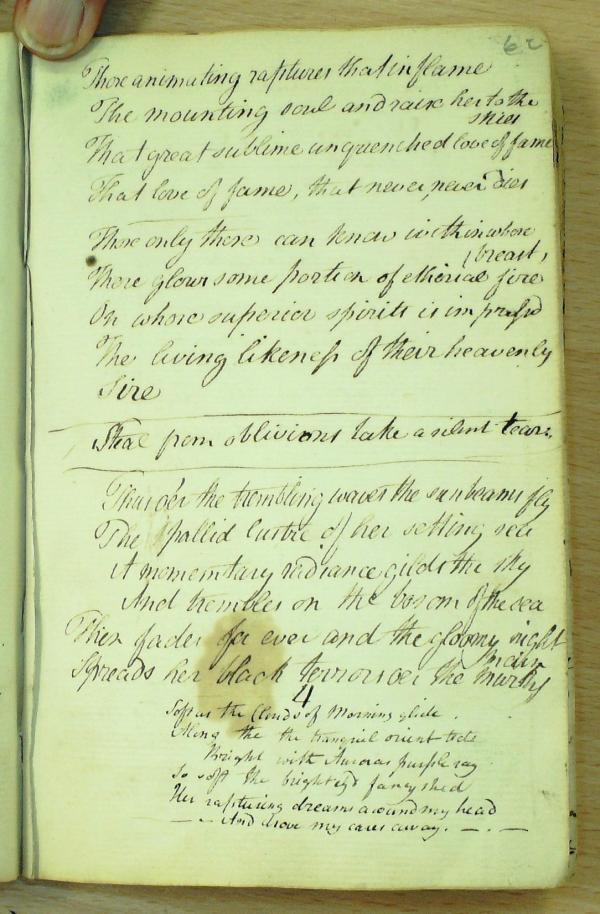 62
Those animating raptures that inflame
The mounting soul and raise her to the
skies
That great sublime unquenched love of fame
That love of fame, that never, never dies
Those only these can know within whose
breast,
There glows some portion of etherial fire
On whose superior spirits is impress'd
The living likeness of their heavenly
Sire
Steal from oblivions lake a silent tear.
Thus o'er the trembling waves the sunbeams fly
The pallid lustre of her setting
A momentary radiance gilds the sky
And trembles on the bosom of the sea
Then fades for ever and the gloomy night
Spreads her black terrors oer the murky
main
4
Soft as the Clouds of Morning glide.
Along the the tranquil orient tide
Bright with Auroras purple ray
So soft the fancy shed
Her rapturing dreams around my head
— And drove my cares away. —. —